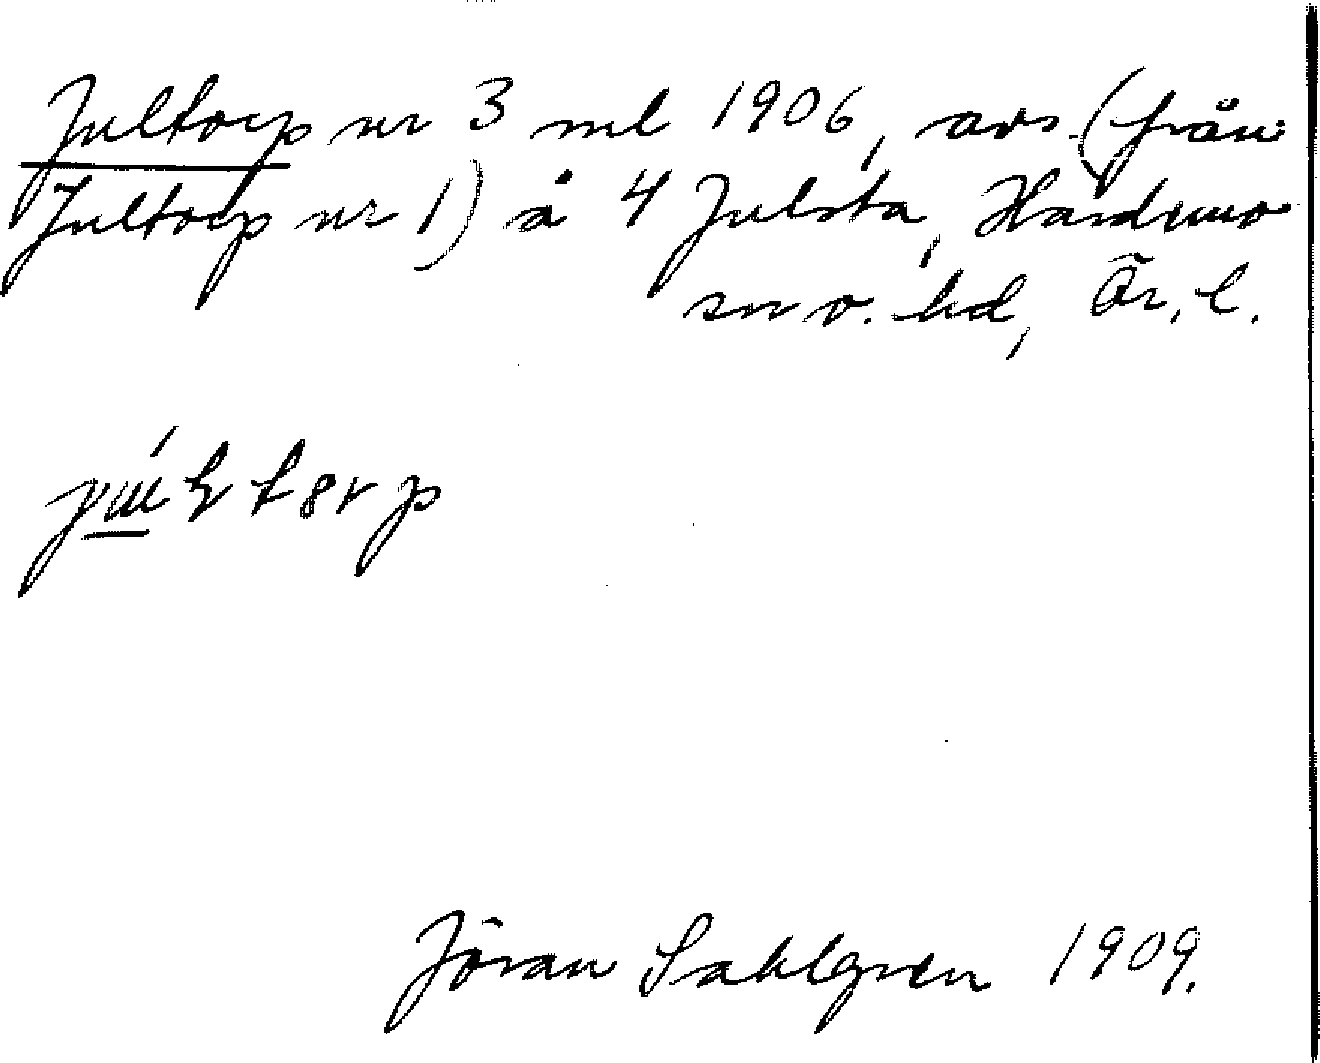 Jultorp nr 3 ml 1906, avs. (från
Jultorp nr 1) å 4 Julsta, Hardemo
sn o. hd, Ör. l.
Jöran Sahlgren 1909.